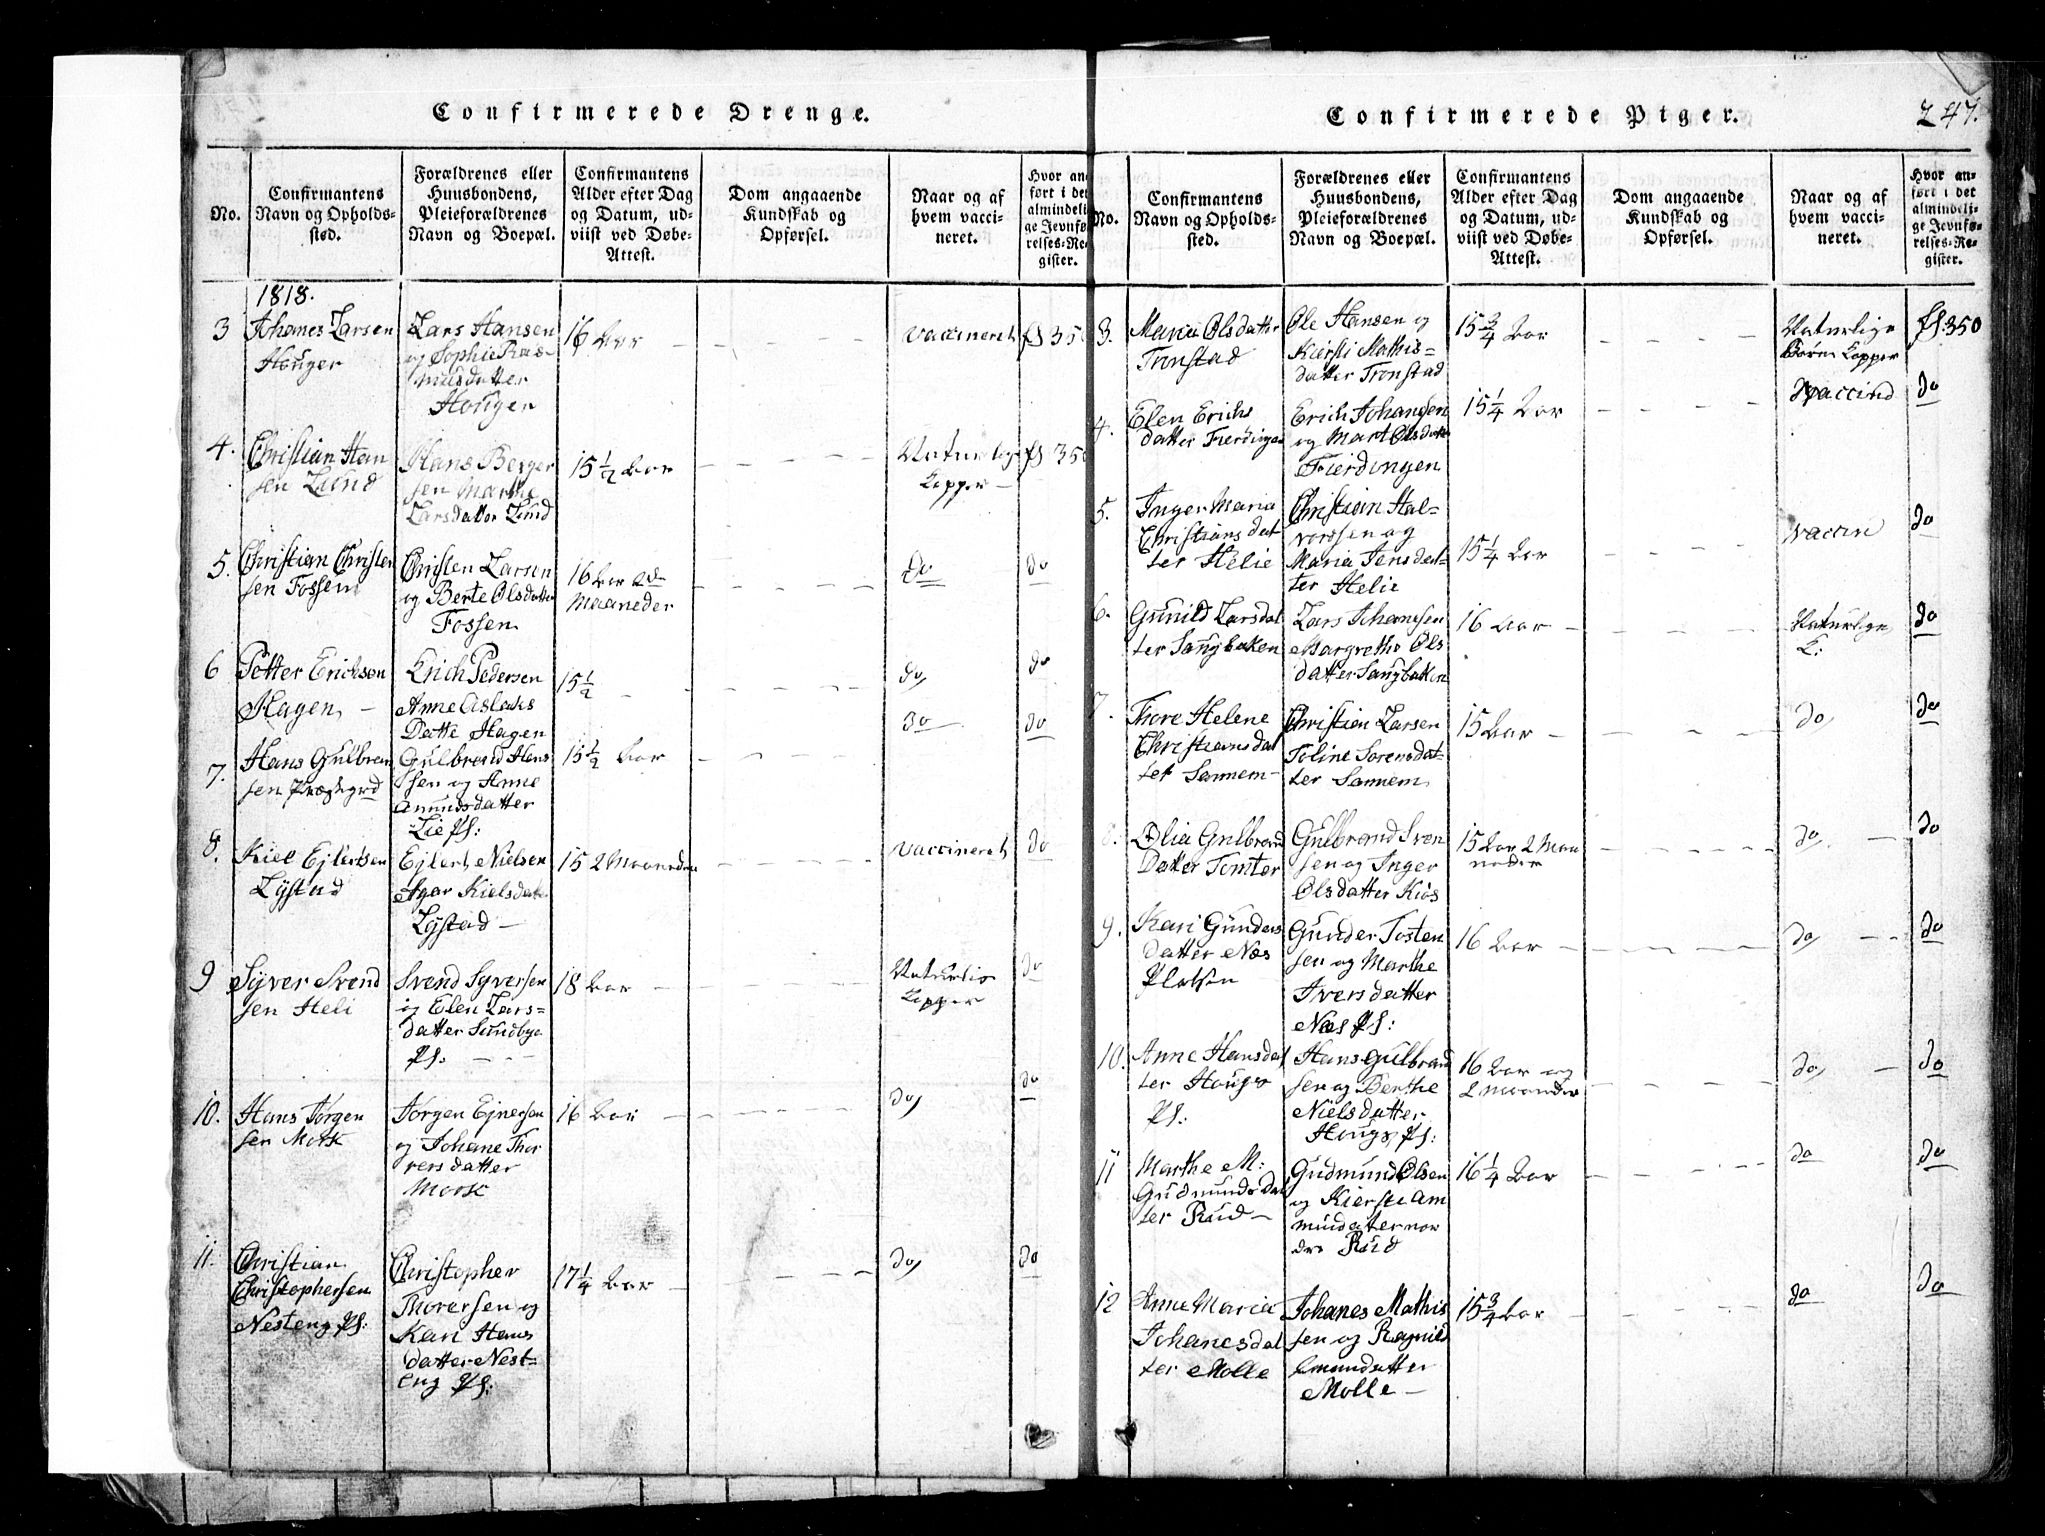 Confirmerede Drenge.
No.
Confirmantens
Navn og Opholds-
sted.
Forældrenes eller
Huusbondens,
Pleieforældrenes
Navn og Boepæl.
Confirmantens
Alder efter Dag
og Datum, ud-
viist ved Døbe-
Attest.
Dom angaaende
Kundskab og
Opførsel.
Naar og af
hvem vacci-
neret.
Hvor an-
ført i det
almindeli-
ge Jevnfø-
relses-Re-
gister.
1818.
3
Johanes Larsen
Houger
Lars Hansen
og Sophie Ras-
musdatter
Hougen
16 Aar
vaccineret
fS 350
4.
Christian Han
sen Lund
Hans Berger
sen Marthe
Larsdatter Lund
15 1/2 Aar
Naturlige
Kopper
fS 350
5.
Christian Christen
sen Fossen
Christen Larsen
og Berte Olsdatter
Fossen
16 Aar
Maaneder
do
do
6
Petter Erichsen
Hagen
Erich Pedersen
Anne Aslaks
Datte Hagen
15 1/2
do
do
7.
Hans Gulbran
sen Præstgrd
Gulbrand Hans
sen og Anne
Amundsdatter
Lie Pl:
15 1/2 Aar
do
do
8.
Kiel Ejlertsen
Lystad
Ejlert Nielsen
Kielsdat
Lystad
15 2 Maaneder
vaccineret
do
9
Syver Svend
sen Heli
Svend Syversen
og Elen Lars-
datter Sundbye
Pl:
18 Aar
Naturlig
Kopper
do
10.
Hans Jørgen
sen Mork
Jørgen Ejnersen
og Johane Thor
versdatter
Moosk
16 Aar
do
do
11.
Christian
Christophersen
Nesteng Pl:
Christopher
Thoresen og
Kari Hans
datter Nest-
eng Pl:
17 1/4 Aar
do
do
Confirmerede Piger.
247.
No.
Confirmantens
Navn og Opholds-
sted.
Forældrenes eller
Huusbondens,
Pleieforældrenes
Navn og Boepæl.
Confirmantens
Alder efter Dag
og Datum, ud-
viist ved Døbe-
Attest.
Dom angaaende
Kundskab og
Opførsel.
Naar og af
hvem vacci-
neret.
Hvor an-
ført i det
almindeli-
ge Jevnfø-
relses-Re-
gister.
3.
Maria Olsdatter
Tronstad
Ole Hansen og
Kiersti Mathis-
datter Tronstad
15 3/4 Aar
Naturlige
Børne Kopper
fS: 350
4.
Elen Erichs
datter Fierdingen
Erich Johansen
og Mart Olsdatter
Fierdingen
15 1/4 Aar
Vaccined
do
5.
Inger Maria
Christians dat
ter Helie
Christian Hal-
vorssen og
Maria Jensdat-
ter Helie
15 1/4 Aar
vaccin
do
6.
Gunild Larsdat
ter Sangbaken
Lars Johansen
Margrethe Ols
datter Sangbaken
16 Aar
Naturlige
K:
do
7.
Thore Helene
Christiansdat
ter Sannem
Christian Larsen
Toline Sorensdat-
ter Sannem
15 Aar
do
do
8.
Olia Gulbrand
Datter Tomter
Gulbrand Sven
sen og Inger
Olsdatter Kiøs
15 Aar 2 Maa
neder
do
do
9.
Kari Gunders
datter Næs
Platsen
Gunder Tosten
sen og Marthe
Iversdatter
Næs Pl:
16 Aar
do
do
10.
Anne Hansdat
ter Hougs
Pl:
Hans Gulbrand
sen og Berthe
Nielsdatter
Hougs Pl:
16 Aar og
2 maaneder
do
do
11
Marthe M:
Gudmunds Dat
ter Rud
Gudmund Olsen
og Kiersti Am
mundatter nor
dre Rud
16 1/4 Aar
do
do
12
Anne Maria
Johanesdat
ter Molle
Johanes Mathis
sen og Ragnild
Emundatter
Molle
15 3/4 Aar
do
do